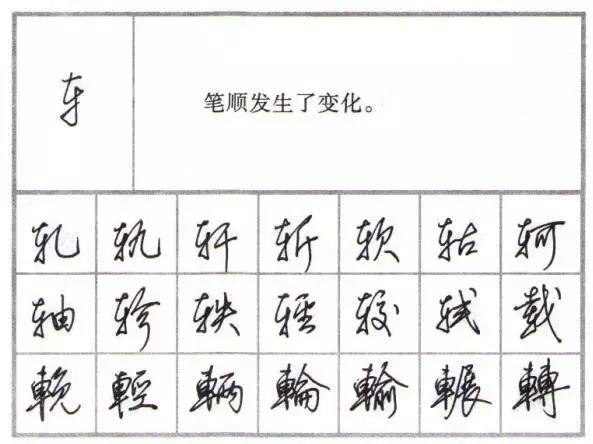 车 笔顺发生了变化。
轧 轨 轩 斩 软 轱 轲
轴 轸 轶 轾 较 轼 载
輓 輕 輛 輪 輸 輾 轉